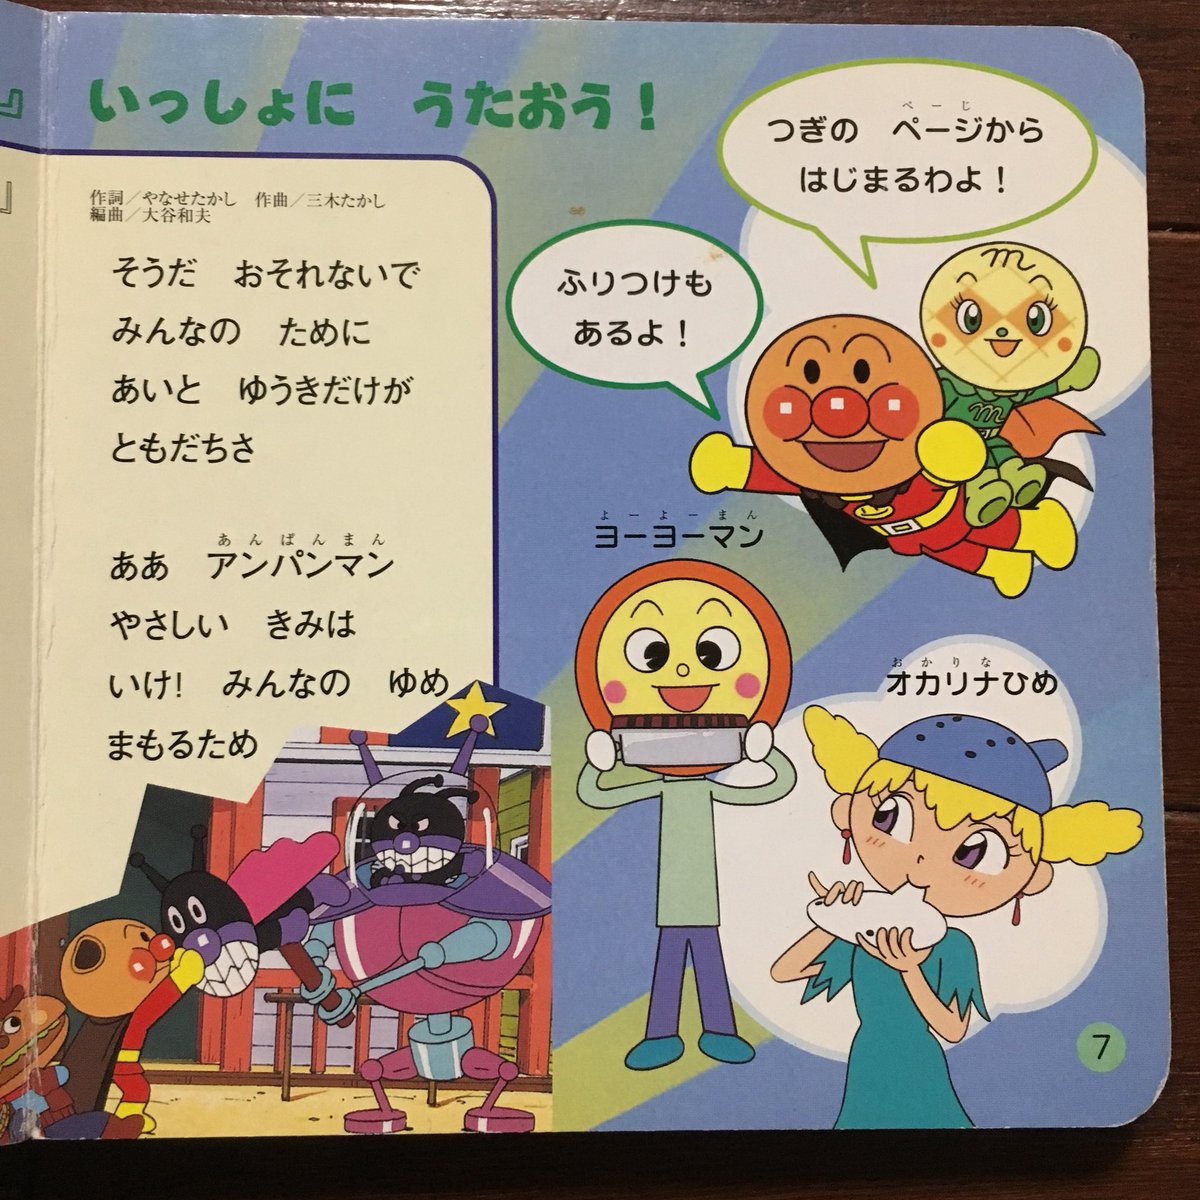 いっしょに うたおう！
作詞／やなせたかし 作曲／三木たかし
編曲／大谷和夫
そうだ おそれないで
みんなの ために
あいと ゆうきだけが
ともだちさ
あんぱんまん
ああ アンパンマン
やさしい きみは
いけ！ みんなの ゆめ
まもるため
ぺーじ
つぎの ページから
はじまるわよ！
ふりつけも
あるよ！
m
m
よーよーまん
ヨーヨーマン
おかりな
オカリナひめ
7
』
』